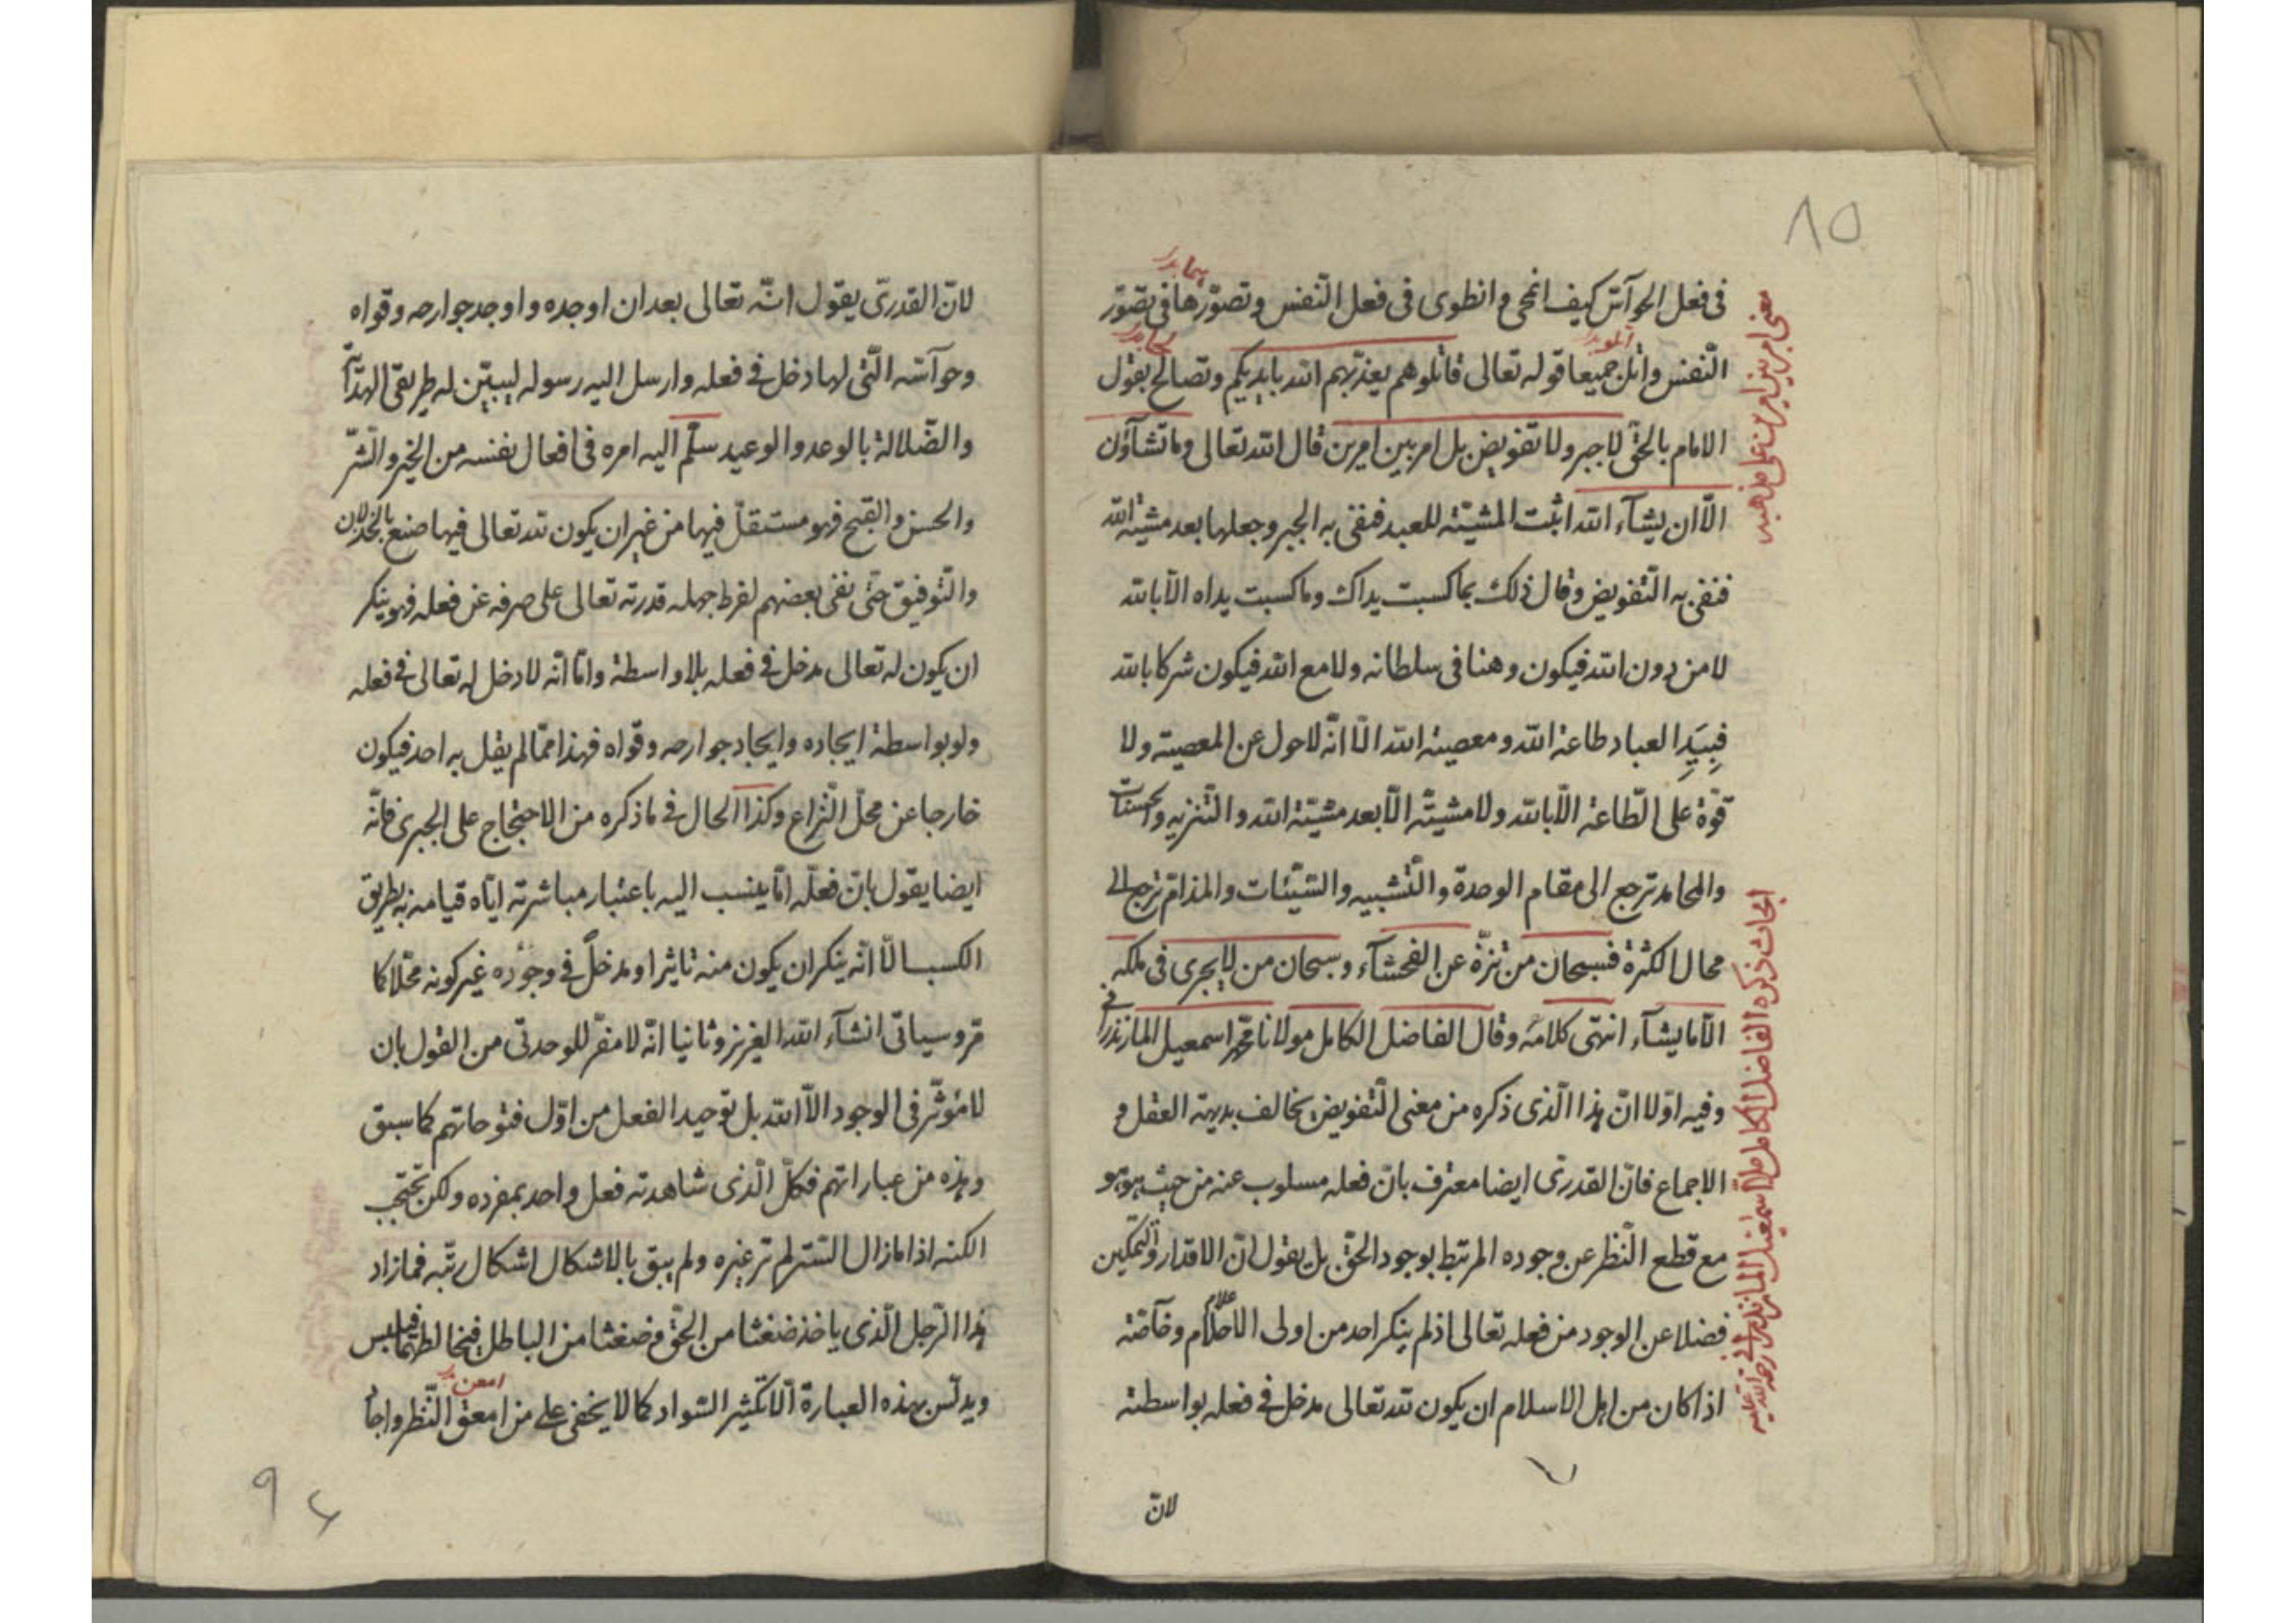 ٨٥
في فعل الحوآسّ كيف انمحى وانطوى في فعل النّفس وتصوّرها في تصوّر
النّفس واتل جميعا قوله تعالى قاتلوهم يعذّبهم الله بايديكم وتصالح بقول
الامام بالحقّ لاجبر ولا تفويض بل امر بين امرين قال الله تعالى وما تشآؤن
الّا ان يشآء الله اثبت المشيّة للعبد فنفى به الجبر وجعلها بعد مشية الله
فنفى به التّفويض وقال ذلك بما كسبت يداك وما كسبت يداه الّا بالله
لا من دون الله فيكون وهنا في سلطانه ولا مع الله فيكون شركا بالله
فبِيَدِ العباد طاعة الله ومعصية الله الّا انّه لا حول عن المعصية ولا
قوّة على الطّاعة الّا بالله ولا مشيّة الّا بعد مشيّة الله والتّنزيه والحسنات
والمحامد ترجع الى مقام الوحدة والتّشبيه والسّيّئات والمذامّ ترجع الى
محال الكثرة فسبحان من تنزّه عن الفحشآء وسبحان من لا يجرى في ملكه
الّا ما يشآء انتهى كلامه وقال الفاضل الكامل مولانا محمّد اسمعيل المازندرانى
وفيه اوّلا انّ هذا الّذى ذكره من معنى التّفويض يخالف بديهة العقل و
الاجماع فانّ القدرىّ ايضا معترف بانّ فعله مسلوب عنه من حيث هو هو
مع قطع النّظر عن وجوده المرتبط بوجود الحقّ بل يقول انّ الاقدار والتّمكين
فضلا عن الوجود من فعله تعالى اذ لم ينكر احد من اولى الاحلام وخاصّة
اذا كان من اهل الاسلام ان يكون لله تعالى مدخل في فعله بواسطة
لانّ
معنى امر بين امرين على مذهبه
ابحاث ذكره الفاضل الكامل ملا اسمعيل المازندرانى رحمة الله عليه
لانّ القدرىّ يقول انّه تعالى بعد ان اوجده واوجد جوارحه وقواه
وحوآسّه الّتى لها دخل في فعله وارسل اليه رسوله ليبيّن له طريقى الهداية
والضّلالة بالوعد والوعيد سلّم اليه امره في افعال نفسه من الخير والشّرّ
والحسن والقبح فهو مستقلّ فيها من غير ان يكون لله تعالى فيها صنع بالخذلان
والتّوفيق حتّى نفى بعضهم لفرط جهله قدرته تعالى على صرفه عن فعله فهو ينكر
ان يكون له تعالى مدخل في فعله بلا واسطة وامّا انّه لا دخل له تعالى في فعله
ولو بواسطة ايجاده وايجاد جوارحه وقواه فهذا ممّا لم يقل به احد فيكون
خارجا عن محلّ النّزاع وكذا الحال في ما ذكره من الاحتجاج على الجبرى فانّه
ايضا يقول بانّ فعله انّما ينسب اليه باعتبار مباشرته ايّاه قيامه به بطريق
الكسب الّا انّه ينكر ان يكون منه تاثير او مدخل في وجوده غير كونه محلّا كما
مرّ وسياتى انشآء الله العزيز وثانيا انّه لا مفرّ للوحدتى من القول بان
لا مؤثّر في الوجود الّا الله بل توحيد الفعل من اوّل فتوحاتهم كما سبق
وهذه من عباراتهم فكلّ الّذى شاهدته فعل واحد بمفرده ولكن تحتجب
الكنه اذا ما زال السّتر لم تر غيره ولم يبق بالاشكال اشكال رتبه فما زاد
هذا الرّجل الّذى ياخذ ضغثا من الحقّ وضغثا من الباطل فيخالطهما فيلبس
ويدلّس بهذه العبارة الّا تكثير السّواد كما لا يخفى على من امعق النّظر واجاد
امعن
٩٤